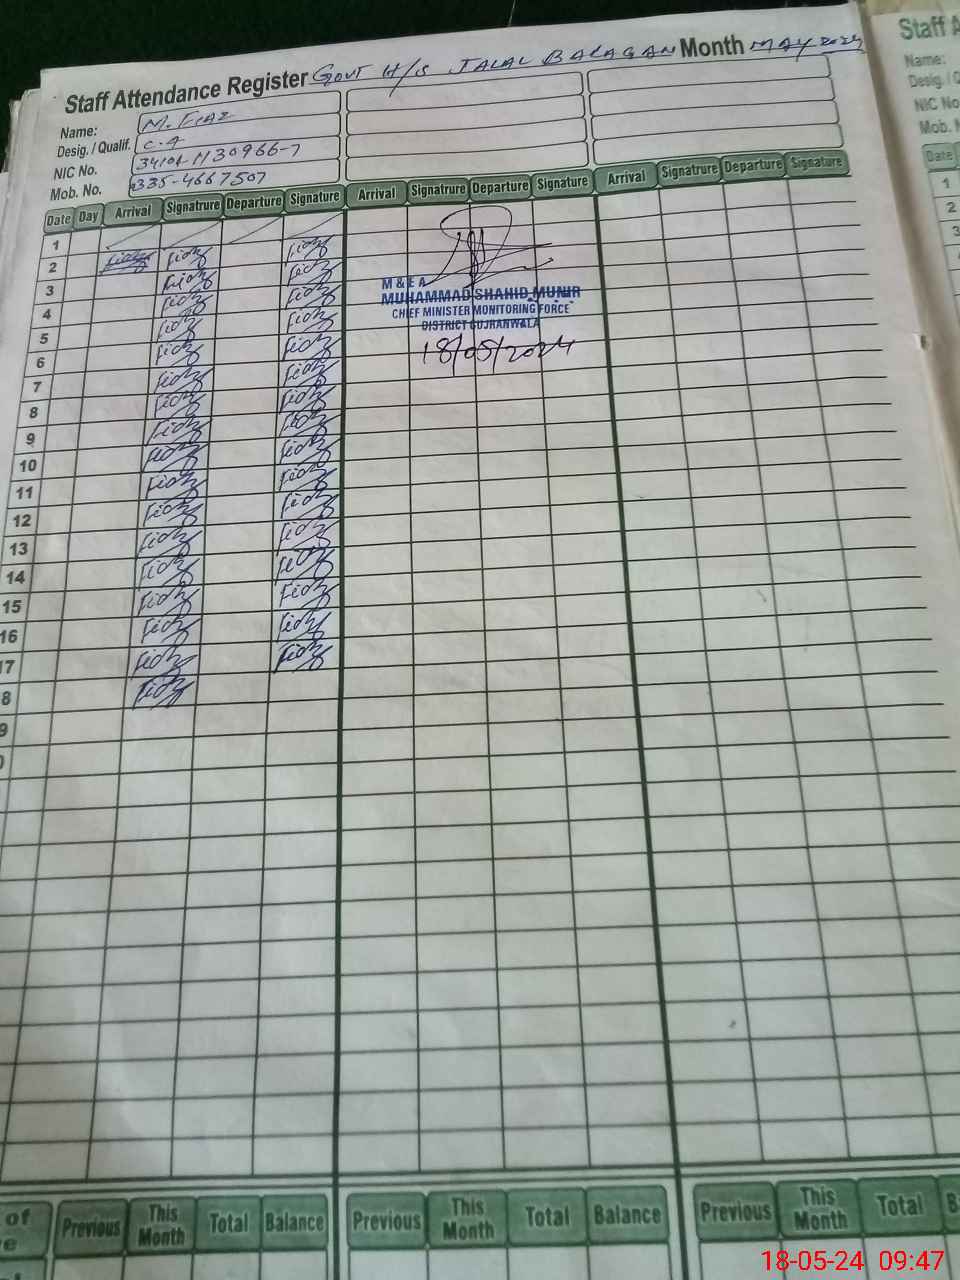 Staff Attendance Register GOVT H/S JALAL BALAGAN Month MAY 2024
Name: M. Fiaz
Desig. / Qualif. C.4
NIC No. 34101-1130966-7
Mob. No. 0335-4667507
Date Day Arrival Signatrure Departure Signature Arrival Signatrure Departure Signature Arrival Signature Departure Signature
1
2 Fiaz Fiaz Fiaz
3 Fiaz Fiaz
4 Fiaz Fiaz
5 Fiaz Fiaz
6 Fiaz Fiaz
7 Fiaz Fiaz
8 Fiaz Fiaz
9 Fiaz Fiaz
10 Fiaz Fiaz
11 Fiaz Fiaz
12 Fiaz Fiaz
13 Fiaz Fiaz
14 Fiaz Fiaz
15 Fiaz Fiaz
16 Fiaz Fiaz
17 Fiaz Fiaz
8 Fiaz
9
M & E A
MUHAMMAD SHAHID MUNIR
CHIEF MINISTER MONITORING FORCE
DISTRICT GUJRANWALA
18/05/2024
of Previous This Month Total Balance Previous This Month Total Balance Previous This Month Total B
Staff A
Name:
Desig. / Q
NIC No
Mob. N
Date
1
2
3
18-05-24 09:47